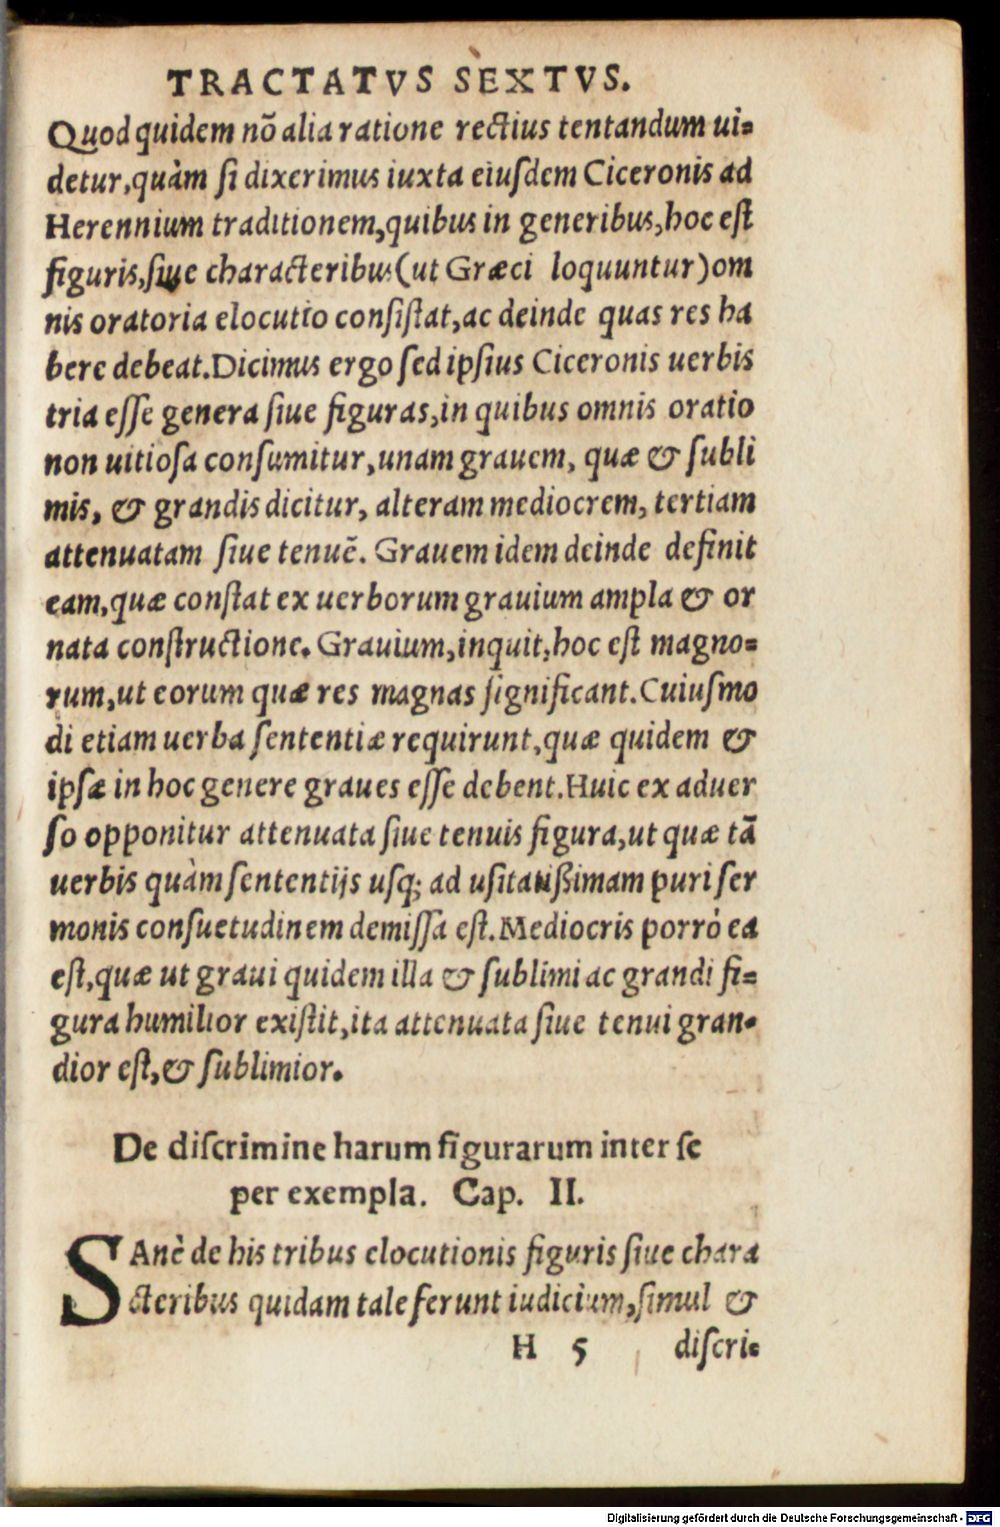 TRACTATVS SEXTVS.
Quod quidem nõ alia ratione rectius tentandum ui=
detur, quàm ſi dixerimus iuxta eiuſdem Ciceronis ad
Herennium traditionem, quibus in generibus, hoc eſt
figuris, ſiue characteribus (ut Græci loquuntur) om
nis oratoria elocutio conſiſtat, ac deinde quas res ha
bere debeat. Dicimus ergo ſed ipſius Ciceronis uerbis
tria eſſe genera ſiue figuras, in quibus omnis oratio
non uitioſa conſumitur, unam grauem, quæ & ſubli
mis, & grandis dicitur, alteram mediocrem, tertiam
attenuatam ſiue tenuẽ. Grauem idem deinde definit
eam, quæ conſtat ex uerborum grauium ampla & or
nata conſtructione. Grauium, inquit, hoc eſt magno=
rum, ut eorum quæ res magnas ſignificant. Cuiuſmo
di etiam uerba ſententiæ requirunt, quæ quidem &
ipſæ in hoc genere graues eſſe debent. Huic ex aduer
ſo opponitur attenuata ſiue tenuis figura, ut quæ tã
uerbis quàm ſententijs uſq; ad uſitatißimam puri ſer
monis conſuetudinem demiſſa eſt. Mediocris porrò ea
eſt, quæ ut graui quidem illa & ſublimi ac grandi fi=
gura humilior exiſtit, ita attenuata ſiue tenui gran=
dior eſt, & ſublimior.
De diſcrimine harum figurarum inter ſe
per exempla. Cap. II.
SAnè de his tribus elocutionis figuris ſiue chara
cteribus quidam tale ferunt iudicium, ſimul &
H 5 diſcri=
Digitalisierung gefördert durch die Deutsche Forschungsgemeinschaft - DFG